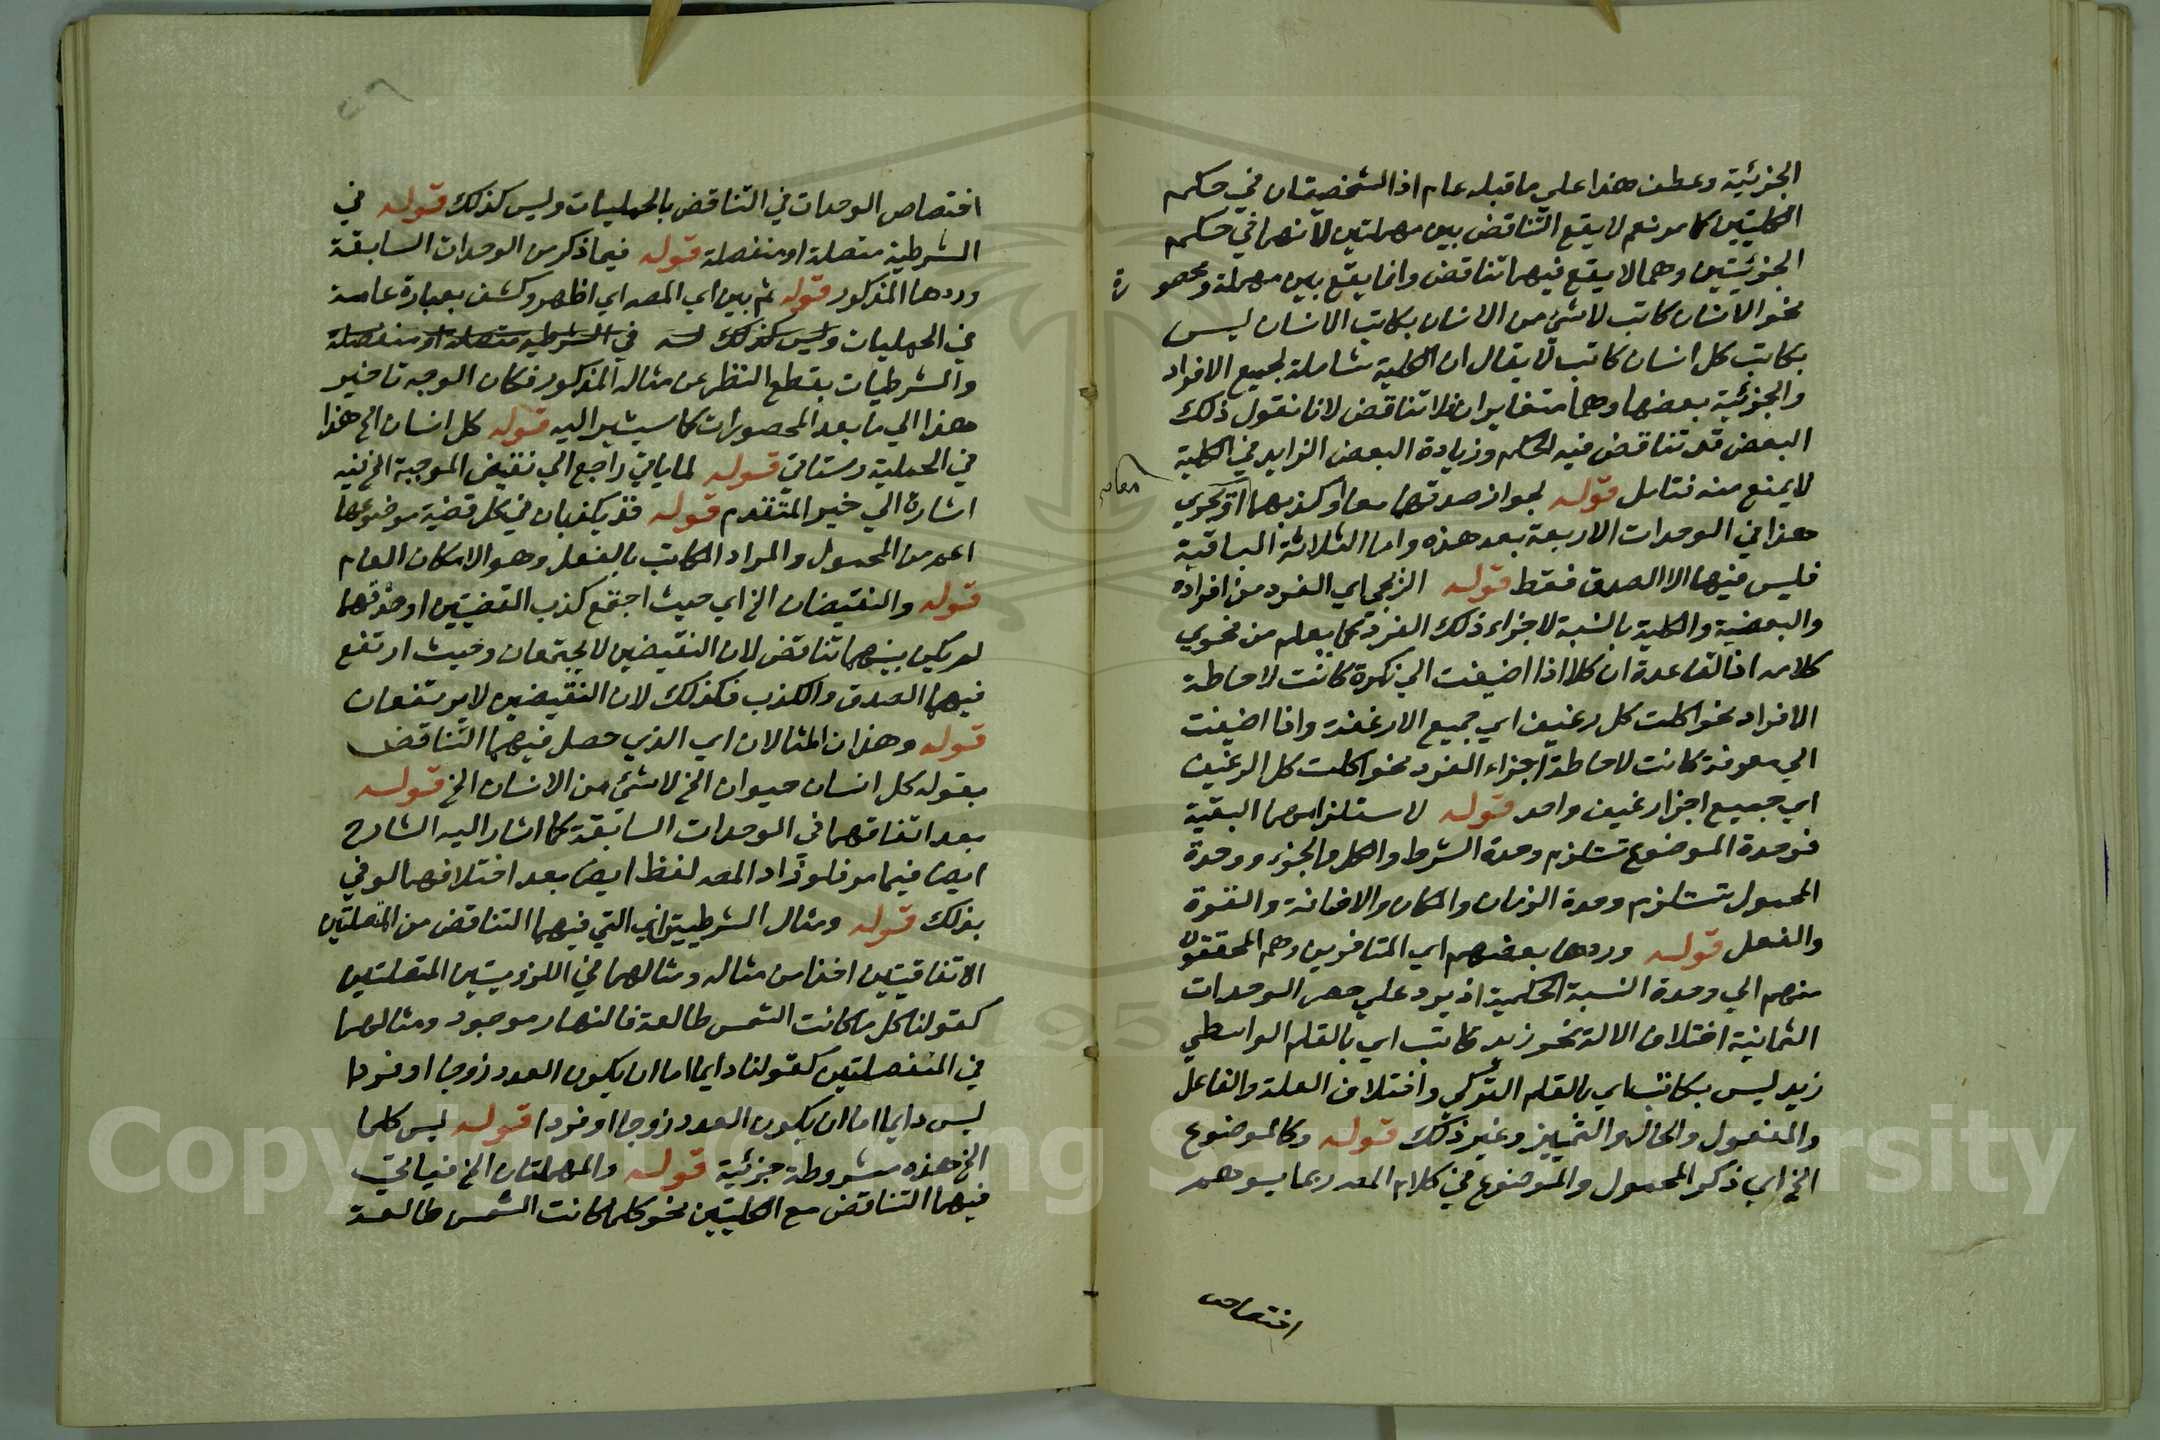 الجزئية وعطف هذا علي ما قبله عام اذ الشخصيتان في حكم
الكليتين كما مر نعم لا يقع التناقض بين مهملتين لأنهما في حكم
الجزئيتين وهما لا يقع فيهما تناقض وانما يقع بين مهملة ومحصورة
نحو الانسان كاتب لا شيء من الانسان بكاتب الانسان ليس
بكاتب كل انسان كاتب لا يقال ان الكلية شاملة لجميع الافراد
والجزئية بعضها وهما متغايران فلا تناقض لانا نقول ذلك
البعض قد تناقض فيه الحكم وزيادة البعض الزايد في الكلية
لا يمنع منه فتامل قوله لجواز صدقهما معا او كذبهما اي ويجري
معا
هذا في الوحدات الاربعة بعد هذه واما الثلاثة الباقية
فليس فيها الا الصدق فقط قوله الزنجي اي الفرد من افراده
والبعضية والكلية بالنسبة لاجزاء ذلك الفرد كما يعلم من فحوي
كلامه اذ القاعدة ان كلا اذا اضيفت الي نكرة كانت لاحاطة
الافراد نحو اكلت كل رغيف اي جميع الارغفة واذا اضيفت
الي معرفة كانت لاحاطة اجزاء الفرد نحو اكلت كل الرغيف
اي جميع اجزا رغيف واحد قوله لاستلزامهما البقية
فوحدة الموضوع تستلزم وحدة الشرط والكل والجزء ووحدة
المحمول تستلزم وحدة الزمان والمكان والاضافة والقوة
والفعل قوله وردها بعضهم اي المتاخرين وهم المحققون
منهم الي وحدة النسبة الحكمية اذ يرد علي حصر الوحدات
الثمانية اختلاف الالة نحو زيد كاتب اي بالقلم الواسطي
زيد ليس بكاتب اي بالقلم التركي واختلاف العلة والفاعل
والمفعول والحال والتمييز وغير ذلك قوله وكالموضوع
الخ اي ذكر المحمول والموضوع في كلام المصـ ربما يوهم
اختصاص
اختصاص الوحدات في التناقض بالحمليات وليس كذلك قوله في
الشرطية متصلة او منفصلة قوله فيما ذكر من الوحدات السابقة
وردها المذكور قوله ثم بين اي المصـ اي اظهر وكشف بعبارة عامة
في الحمليات وليس كذلك في الشرطية متصلة او منفصلة
والشرطيات بقطع النظر عن مثاله المذكور فكان الوجه تاخير
هذا الي ما بعد المحصورات كما سيشير اليه قوله كل انسان الخ هذا
في الحملية وستاتي قوله لما ياتي راجع الي نقيض الموجبة الخ فيه
اشارة الي خبر المتقدم قوله قد يكذبان في كل قضية موضوعها
اعم من المحمول والمراد الكاتب بالفعل وهو الامكان العام
قوله والنقيضان الخ اي حيث اجتمع كذب القضيتين او صدقهما
لم يكن بينهما تناقض لان النقيضين لا يجتمعان وحيث ارتفع
فيهما الصدق والكذب فكذلك لان النقيضين لا يرتفعان
قوله وهذان المثالان اي الذي حصل فيهما التناقض
بقوله كل انسان حيوان الخ لا شيء من الانسان الخ قوله
بعد اتفاقهما في الوحدات السابقة كما اشار اليه الشارح
ايضا فيما مر فلو زاد المصـ لفظ ايضا بعد اختلافهما لوفي
بذلك قوله ومثال الشرطيتين اي التي فيهما التناقض من المتصلتين
الاتفاقيتين اخذا من مثاله ومثالهما في اللزوميتين المتصلتين
كقولنا كل ما كانت الشمس طالعة فالنهار موجود ومثالهما
في المنفصلتين كقولنا دايما اما ان يكون العدد زوجا او فردا
ليس دايما اما ان يكون العدد زوجا او فردا قوله ليس كلما
الخ هذه مشروطة جزئية قوله والمهملتان الخ فياتي
فيهما التناقض مع الكليتين نحو كلما كانت الشمس طالعة